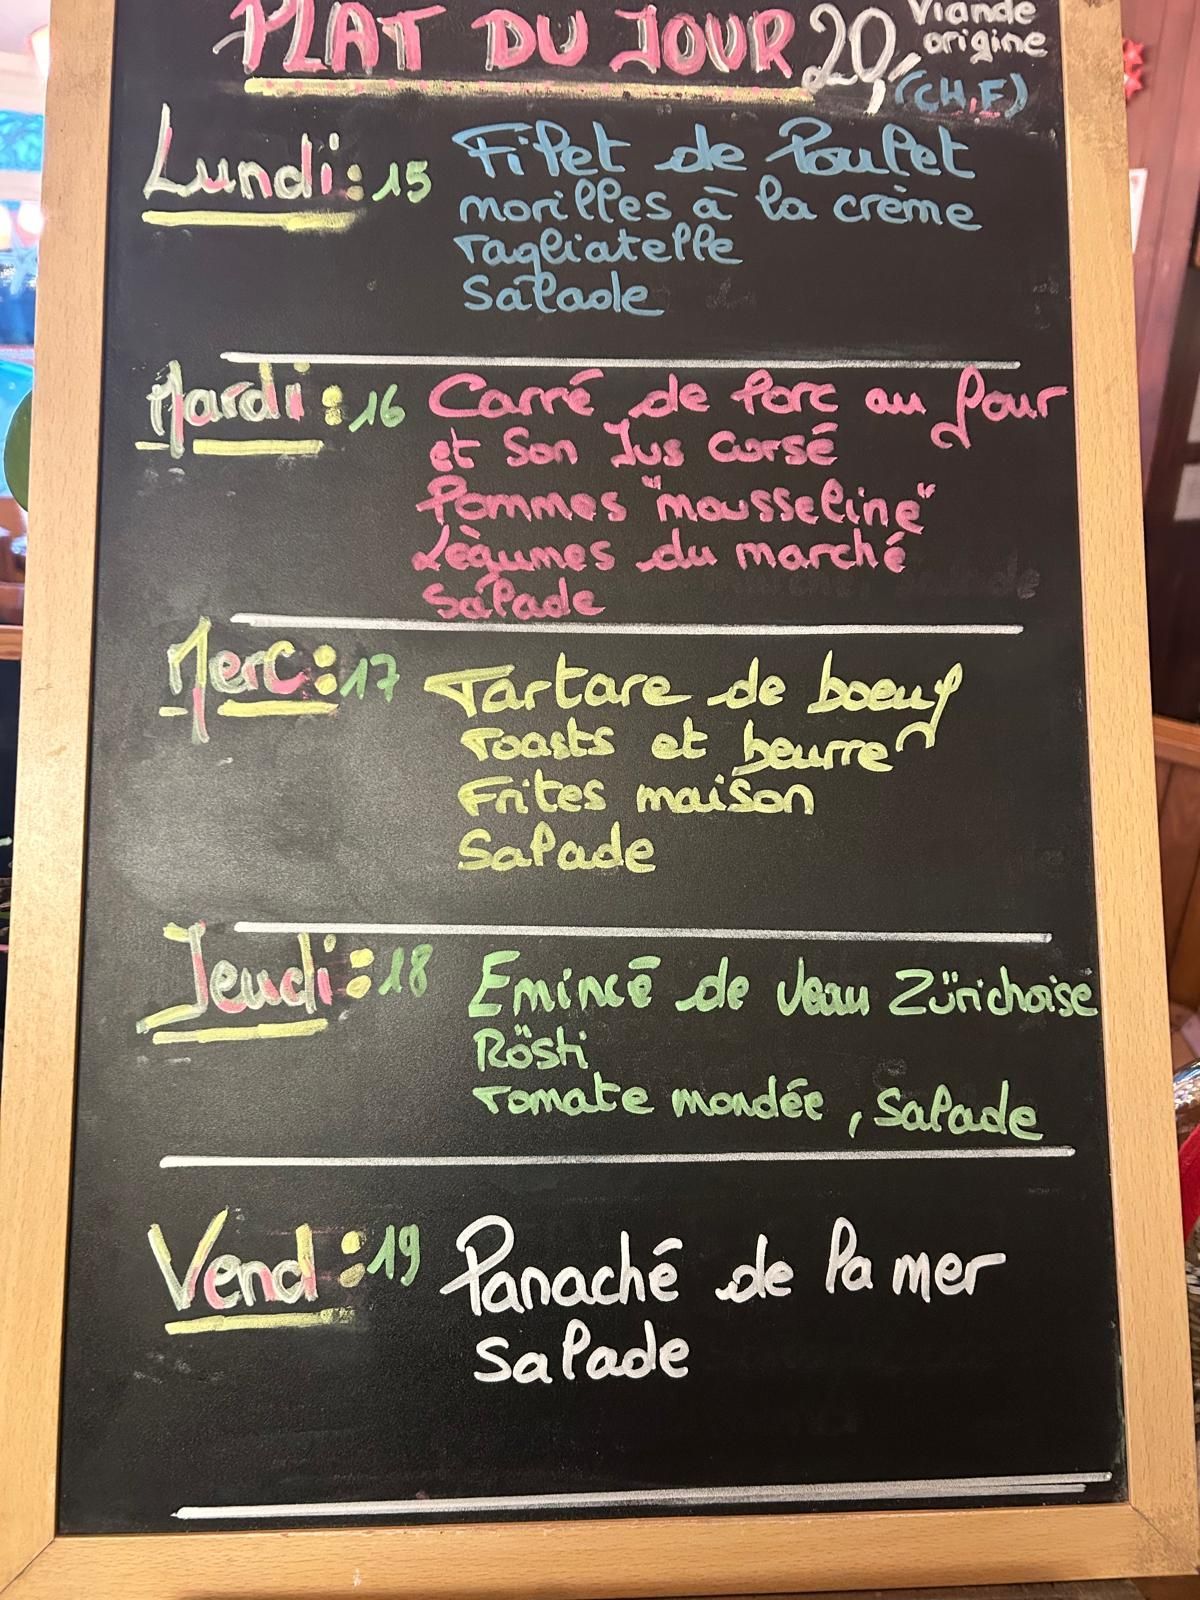 PLAT DU JOUR 20,- Viande
origine
(CH,F)
Lundi : 15 Filet de Poulet
morilles à la crème
Tagliatelle
Salade
Mardi : 16 Carré de Porc au four
et Son Jus corsé
Pommes "mousseline"
Légumes du marché
Salade
Merc : 17 Tartare de boeuf
Toasts et beurre
Frites maison
Salade
Jeudi : 18 Emincé de Veau Zürichoise
Rösti
Tomate mondée, Salade
Vend : 19 Panaché de la mer
Salade